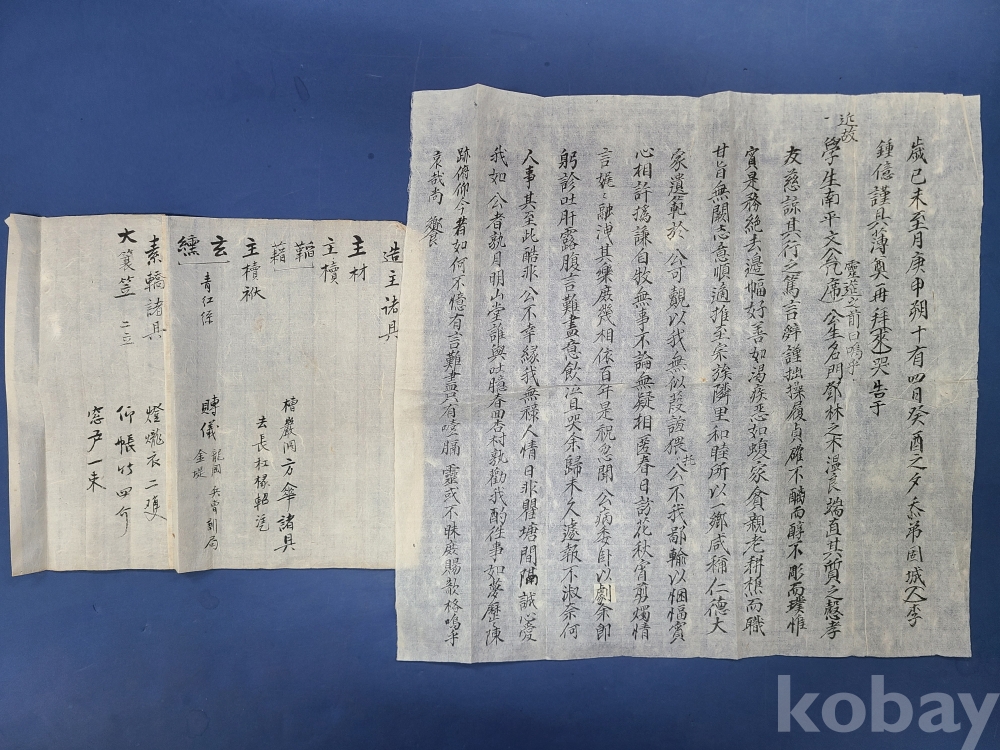 歲己未至月庚申朔十有四日癸酉之夕忝弟固城人李
鍾億謹具薄奠再拜哭告于
近故
學生南平文公几席公生名門鄧林之木漫長端直其質之慤孝
靈筵之前曰嗚乎
友慈諒其行之篤言辭謹拙操履貞確不醨而醇不彫而璞惟
實是務絶去邊幅好善如渴疾惡如蝮家貧親老耕樵而職
甘旨無闕志意順適推至宗族隣里和睦所以一鄉咸稱仁德大
家遺範於公可覿以我無似葭誼猥托公不我鄙輸以悃愊賓
心相許撝謙自牧無事不論無疑相匿春日訪花秋宵剪燭情
言娓〻融洩其樂庶幾相依百年是祝忽聞公病委身以劇余卽
躬診吐肝露腹言難盡意飮泣且哭余歸未久遽報不淑奈何
人事其至此酷非公不幸緣我無祿人情日非瞿塘間隔誠心愛
我如公者孰月明山堂誰與吐臆春回杏村孰勸我酌往事如夢歷陳
跡俯仰今昔如何不憶有言難盡只有哽膈靈或不昧庶賜歆格嗚乎
哀哉尚饗
造主諸具
主材
主櫝
韜
藉
主櫝袱
玄
纁
青紅係
素轎諸具
大簑笠 二立
方傘諸具
賻儀
金堤
燈燭衣二雙
仰帳竹四介
窓戶一束
kobay